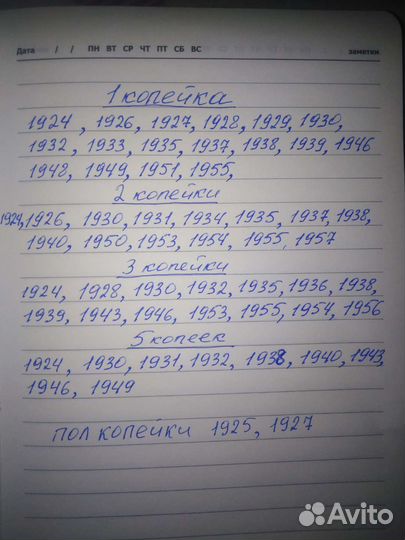 Дата / / ПН ВТ СР ЧТ ПТ СБ ВС заметки
1 копейка
1924, 1926, 1927, 1928, 1929, 1930,
1932, 1933, 1935, 1937, 1938, 1939, 1946
1948, 1949, 1951, 1955,
2 копейки
1924, 1926, 1930, 1931, 1934, 1935, 1937, 1938,
1940, 1950, 1953, 1954, 1955, 1957
3 копейки
1924, 1928, 1930, 1932, 1935, 1936, 1938,
1939, 1943, 1946, 1953, 1955, 1954, 1956
5 копеек
1924, 1930, 1931, 1932, 1938, 1940, 1943,
1946, 1949
пол копейки 1925, 1927
Avito